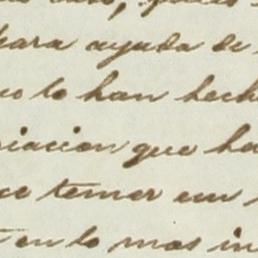 para ayuda de
lo han hech
iacion que ha
temer em
en lo mas in